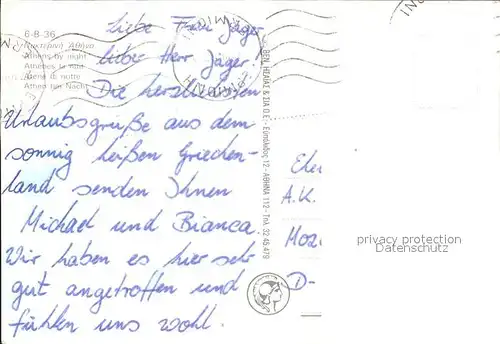 6-8-36
Νυκτερινή Ἀθήνα
Athens by night
Athènes la nuit
Atene di notte
Athen bei Nacht
Liebe Frau Jäger
lieber Herr Jäger!
Die herzlichsten
Urlaubsgrüße aus dem
sonnig heißen Griechen-
land senden Ihnen
Michael und Bianca.
Wir haben es hier sehr
gut angetroffen und
fühlen uns wohl.
12 - ΑΘΗΝΑ 112 - Τηλ. 32 45 479
A.K.
Moz
D-
privacy protection
Datenschutz